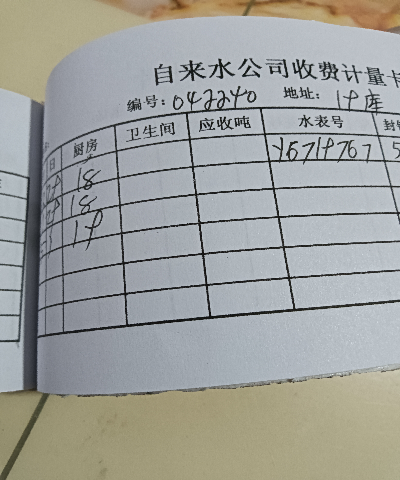 自来水公司收费计量卡
编号: 042240 地址: 1#库
日 厨房 卫生间 应收吨 水表号
18 Y6719767 5
18
19